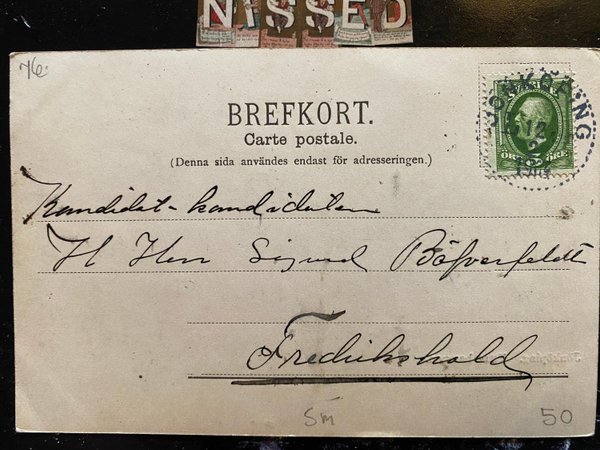 NISSED
76.
BREFKORT.
Carte postale.
(Denna sida användes endast för adresseringen.)
JÖNKÖPING
12
5 ÖRE
Kandidat-kandidaten
H Herr Sigurd Böfverfeldt
Fredrikshald
Sm
50